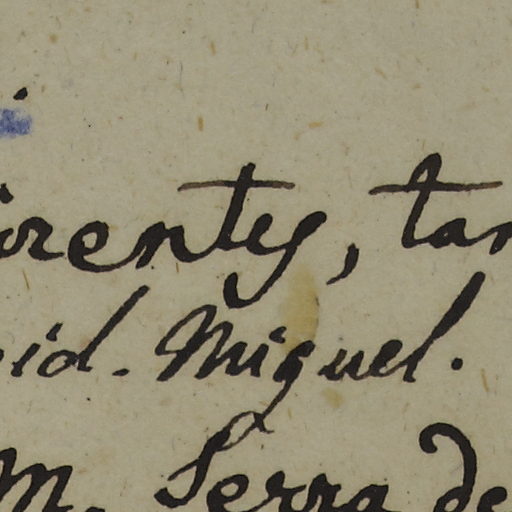 orentz, tan
id. Miguel.
M. Serra de